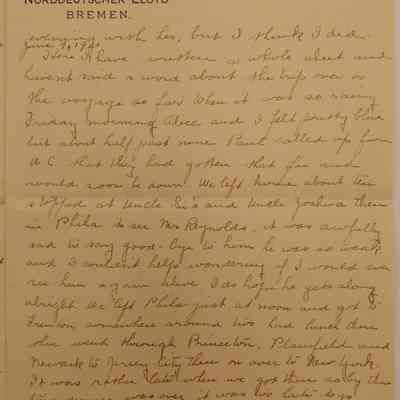 NORDDEUTSCHER LLOYD
BREMEN.
evening with her, but I think I did.
June 9, 19
Here I have written a whole sheet and
haven't said a word about the trip over or
the voyage so far. When it was so rainy
Friday morning Alice and I felt pretty blue
but about half past nine Paul called up from
A.C. that they had gotten that far and
would soon be down. We left home about ten
stopped at Uncle Si's and Uncle Joshua's then
in Phila to see Mr Reynolds. it was awfully
sad to say good-bye to him he was so weak
and I couldn't help wondering if I would ever
see him again alive. I do hope he gets along
alright. We left Phila just at noon and got to
Trenton somewhere around two had lunch there
then went through Princeton, Plainfield and
Newark to Jersey City then on over to New York.
It was rather late when we got there so by the
time dinner was over it was too late to go